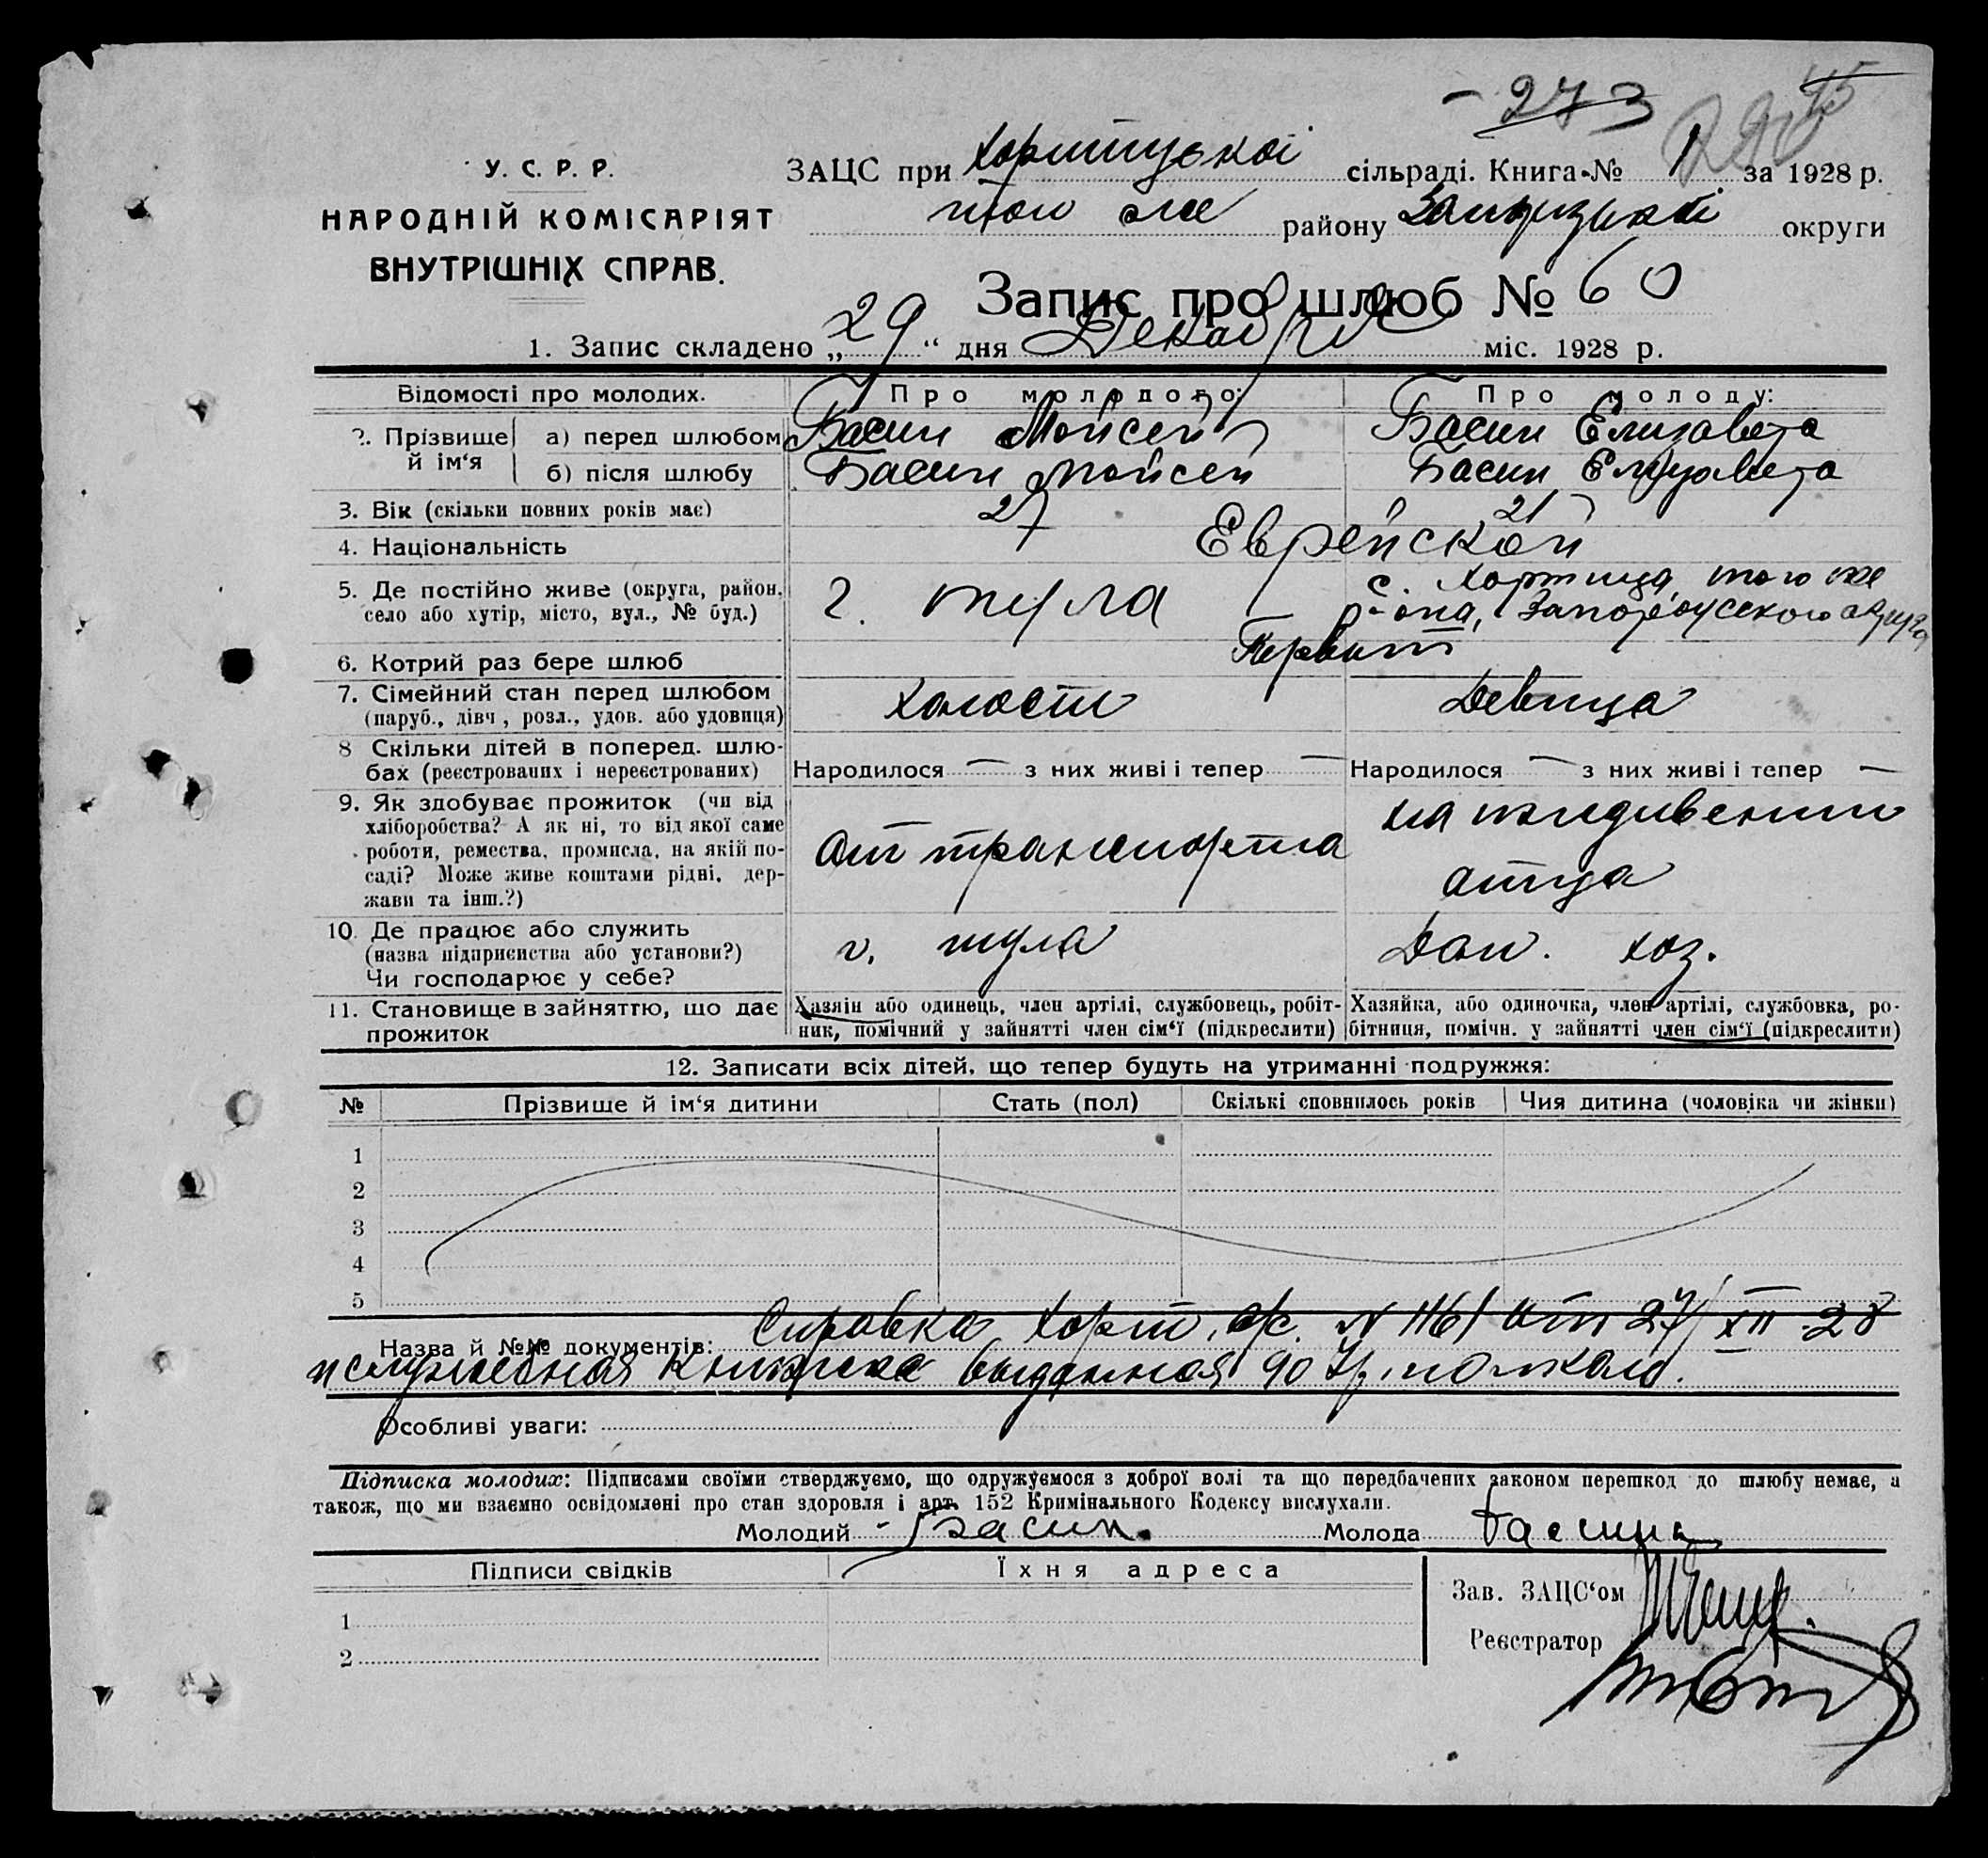 - 273
У. С. Р. Р.
НАРОДНІЙ КОМІСАРІЯТ
ВНУТРІШНІХ СПРАВ.
ЗАЦС при Хортицької сільраді. Книга № 1 за 1928 р.
той же району Запорізької округи
Запис про шлюб № 60
1. Запис складено „29“ дня Декабря міс. 1928 р.
Відомості про молодих. Про молодого: Про молоду:
2. Прізвище й ім‘я а) перед шлюбом Басин Мойсей Басин Елизавета
б) після шлюбу Басин Мойсей Басин Елизавета
3. Вік (скільки повних років має) 27 21
4. Національність Еврейской
5. Де постійно живе (округа, район, село або хутір, місто, вул., № буд.) г. Тула с. Хортица, того же р-она, Запорожского округа
6. Котрий раз бере шлюб Первый
7. Сімейний стан перед шлюбом (паруб., дівч., розл., удов. або удовиця) Холост Девица
8 Скільки дітей в поперед. шлюбах (реєстрованих і нереєстрованих) Народилося — з них живі і тепер — Народилося — з них живі і тепер —
9. Як здобуває прожиток (чи від хліборобства? А як ні, то від якої саме роботи, ремества, промисла, на якій посаді? Може живе коштами рідні, держави та інш.?) от транспорта на иждивении отца
10. Де працює або служить (назва підприємства або установи?) Чи господарює у себе? г. Тула Дом. хоз.
11. Становище в зайняттю, що дає прожиток Хазяїн або одинець, член артілі, службовець, робітник, помічний у зайнятті член сім‘ї (підкреслити) Хазяйка, або одиночка, член артілі, службовка, робітниця, помічн. у зайнятті член сім‘ї (підкреслити)
12. Записати всіх дітей, що тепер будуть на утриманні подружжя:
№ Прізвище й ім‘я дитини Стать (пол) Скількі сповнилось років Чия дитина (чоловіка чи жінки)
1
2
3
4
5
Назва й №№ документів: Справка Хорт. с/с. N 1161 от 27/XII-28
и служебная книжка выданная 90 полком.
Особливі уваги:
Підписка молодих: Підписами своїми стверджуємо, що одружуємося з доброї волі та що передбачених законом перешкод до шлюбу немає, а
також, що ми взаємно освідомлені про стан здоровля і арт. 152 Кримінального Кодексу вислухали.
Молодий Басин. Молода Басина
Підписи свідків Їхня адреса
Зав. ЗАЦС‘ом
1
Реєстратор
2